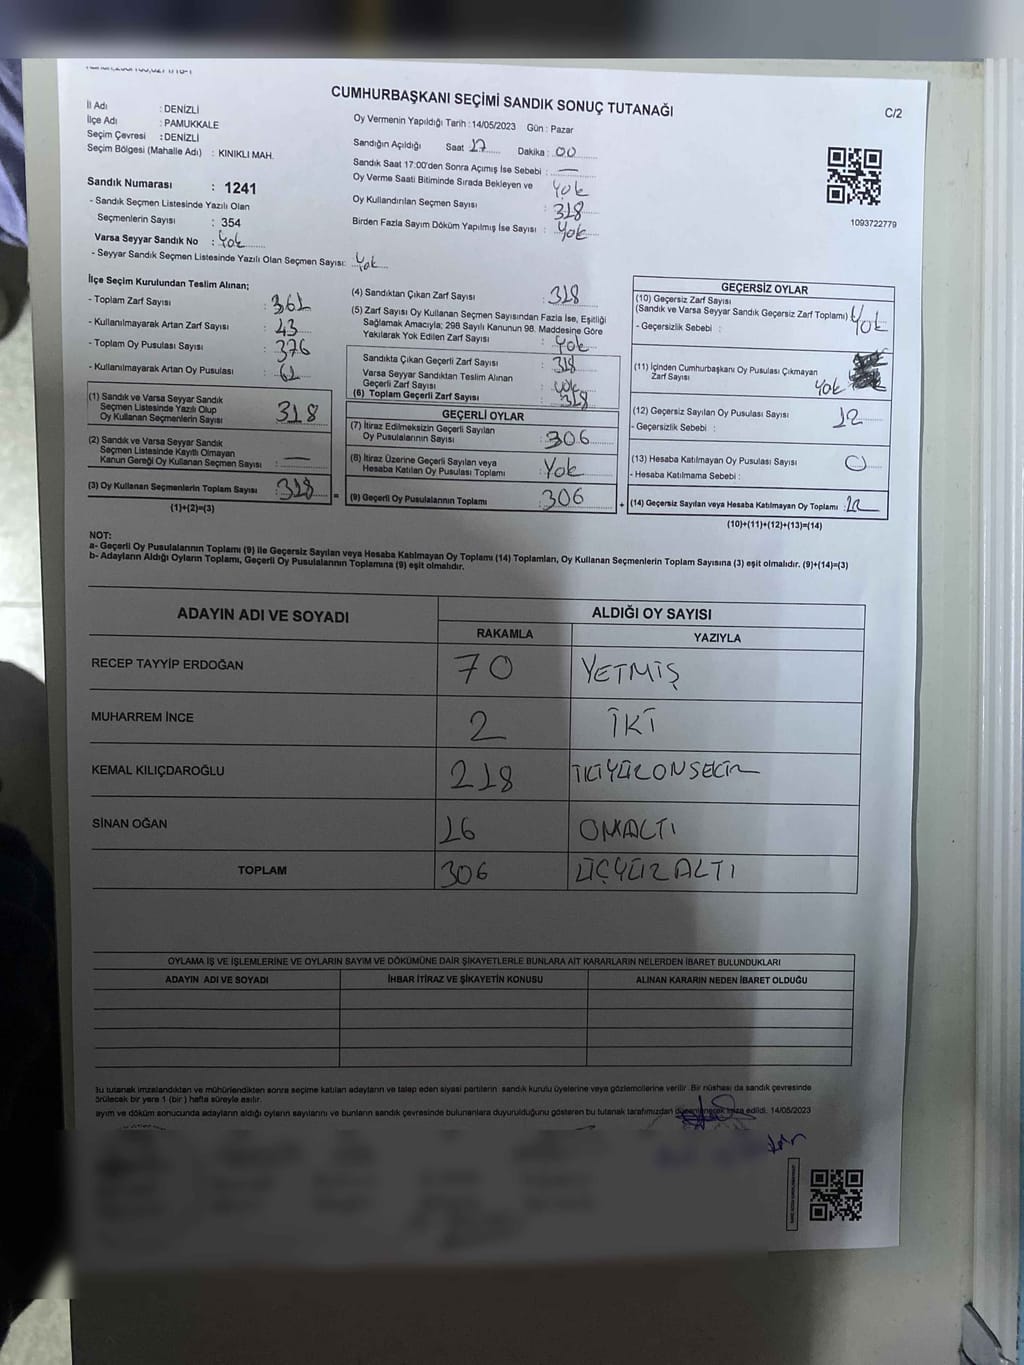 CUMHURBAŞKANI SEÇİMİ SANDIK SONUÇ TUTANAĞI
C/2
İl Adı : DENİZLİ
İlçe Adı : PAMUKKALE
Seçim Çevresi : DENİZLİ
Seçim Bölgesi (Mahalle Adı) : KINIKLI MAH.
Sandık Numarası : 1241
- Sandık Seçmen Listesinde Yazılı Olan
Seçmenlerin Sayısı : 354
Varsa Seyyar Sandık No : Yok
- Seyyar Sandık Seçmen Listesinde Yazılı Olan Seçmen Sayısı: Yok
Oy Vermenin Yapıldığı Tarih : 14/05/2023 Gün : Pazar
Sandığın Açıldığı Saat 17 Dakika : 00
Sandık Saat 17:00'den Sonra Açımış İse Sebebi : —
Oy Verme Saati Bitiminde Sırada Bekleyen ve Yok
Oy Kullandırılan Seçmen Sayısı : 318
Birden Fazla Sayım Döküm Yapılmış İse Sayısı : Yok
1093722779
İlçe Seçim Kurulundan Teslim Alınan;
- Toplam Zarf Sayısı : 361
- Kullanılmayarak Artan Zarf Sayısı : 43
- Toplam Oy Pusulası Sayısı : 376
- Kullanılmayarak Artan Oy Pusulası : 61
(1) Sandık ve Varsa Seyyar Sandık
Seçmen Listesinde Yazılı Olup
Oy Kullanan Seçmenlerin Sayısı : 318
(2) Sandık ve Varsa Seyyar Sandık
Seçmen Listesinde Kayıtlı Olmayan
Kanun Gereği Oy Kullanan Seçmen Sayısı : —
(3) Oy Kullanan Seçmenlerin Toplam Sayısı : 318 =
(1)+(2)=(3)
(4) Sandıktan Çıkan Zarf Sayısı : 318
(5) Zarf Sayısı Oy Kullanan Seçmen Sayısından Fazla İse, Eşitliği
Sağlamak Amacıyla; 298 Sayılı Kanunun 98. Maddesine Göre
Yakılarak Yok Edilen Zarf Sayısı : Yok
Sandıkta Çıkan Geçerli Zarf Sayısı : 318
Varsa Seyyar Sandıktan Teslim Alınan
Geçerli Zarf Sayısı : Yok
(6) Toplam Geçerli Zarf Sayısı : 318
GEÇERLİ OYLAR
(7) İtiraz Edilmeksizin Geçerli Sayılan
Oy Pusulalarının Sayısı : 306
(8) İtiraz Üzerine Geçerli Sayılan veya
Hesaba Katılan Oy Pusulası Toplamı : Yok
(9) Geçerli Oy Pusulalarının Toplamı : 306 +
GEÇERSİZ OYLAR
(10) Geçersiz Zarf Sayısı
(Sandık ve Varsa Seyyar Sandık Geçersiz Zarf Toplamı) : Yok
- Geçersizlik Sebebi :
(11) İçinden Cumhurbaşkanı Oy Pusulası Çıkmayan
Zarf Sayısı Yok
(12) Geçersiz Sayılan Oy Pusulası Sayısı : 12
- Geçersizlik Sebebi :
(13) Hesaba Katılmayan Oy Pusulası Sayısı : 0
- Hesaba Katılmama Sebebi :
(14) Geçersiz Sayılan veya Hesaba Katılmayan Oy Toplamı : 12
(10)+(11)+(12)+(13)=(14)
NOT:
a- Geçerli Oy Pusulalarının Toplamı (9) ile Geçersiz Sayılan veya Hesaba Katılmayan Oy Toplamı (14) Toplamları, Oy Kullanan Seçmenlerin Toplam Sayısına (3) eşit olmalıdır. (9)+(14)=(3)
b- Adayların Aldığı Oyların Toplamı, Geçerli Oy Pusulalarının Toplamına (9) eşit olmalıdır.
ADAYIN ADI VE SOYADI ALDIĞI OY SAYISI
RAKAMLA YAZIYLA
RECEP TAYYİP ERDOĞAN 70 YETMİŞ
MUHARREM İNCE 2 İKİ
KEMAL KILIÇDAROĞLU 218 İKİYÜZONSEKİZ
SİNAN OĞAN 16 ONALTI
TOPLAM 306 ÜÇYÜZALTI
OYLAMA İŞ VE İŞLEMLERİNE VE OYLARIN SAYIM VE DÖKÜMÜNE DAİR ŞİKAYETLERLE BUNLARA AİT KARARLARIN NELERDEN İBARET BULUNDUKLARI
ADAYIN ADI VE SOYADI İHBAR İTİRAZ VE ŞİKAYETİN KONUSU ALINAN KARARIN NEDEN İBARET OLDUĞU
Bu tutanak imzalandıktan ve mühürlendikten sonra seçime katılan adayların ve talep eden siyasi partilerin sandık kurulu üyelerine veya gözlemcilerine verilir. Bir nüshası da sandık çevresinde
görülecek bir yere 1 (bir) hafta süreyle asılır.
ayım ve döküm sonucunda adayların aldığı oyların sayılarını ve bunların sandık çevresinde bulunanlara duyurulduğunu gösteren bu tutanak tarafımızdan düzenlenerek imza edildi. 14/05/2023